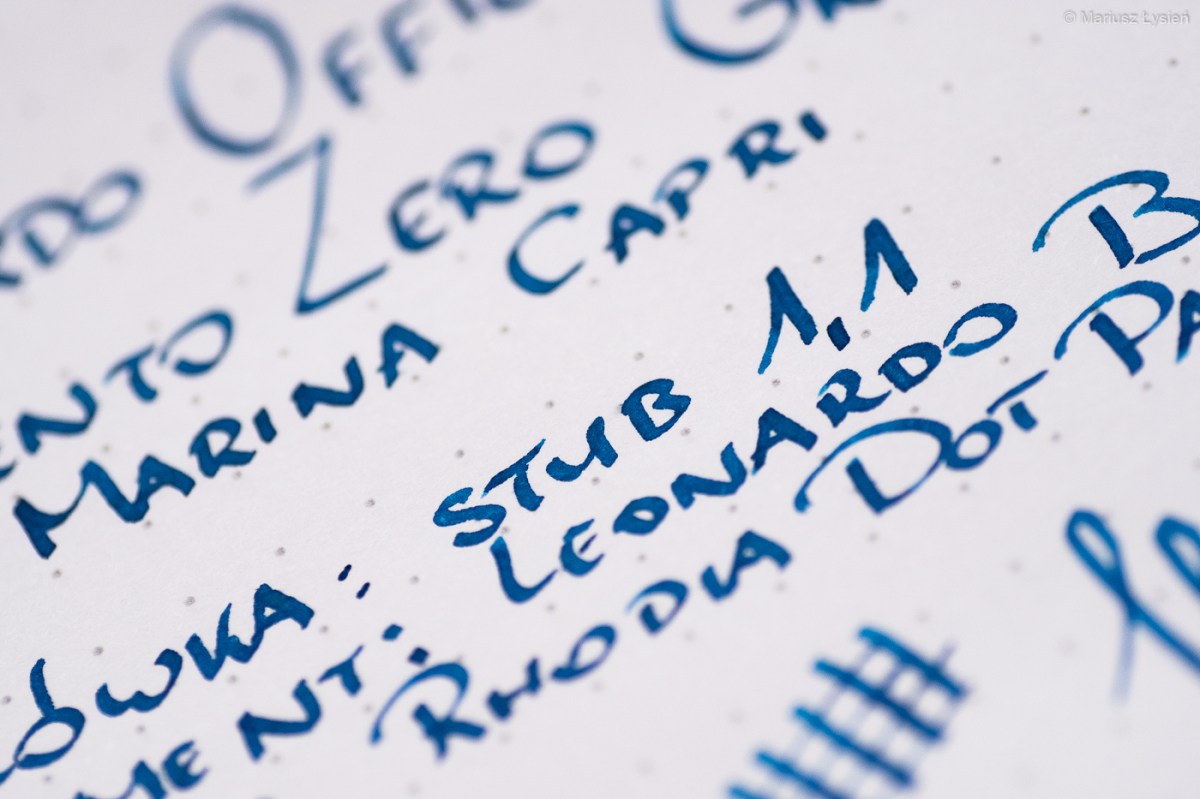 © Mariusz Łysień
RDO OFFIC
ENTO ZERO G
MARINA CAPRI
ÓWKA: STUB 1,1 B
MENT: LEONARDO
RHODIA DOT PA